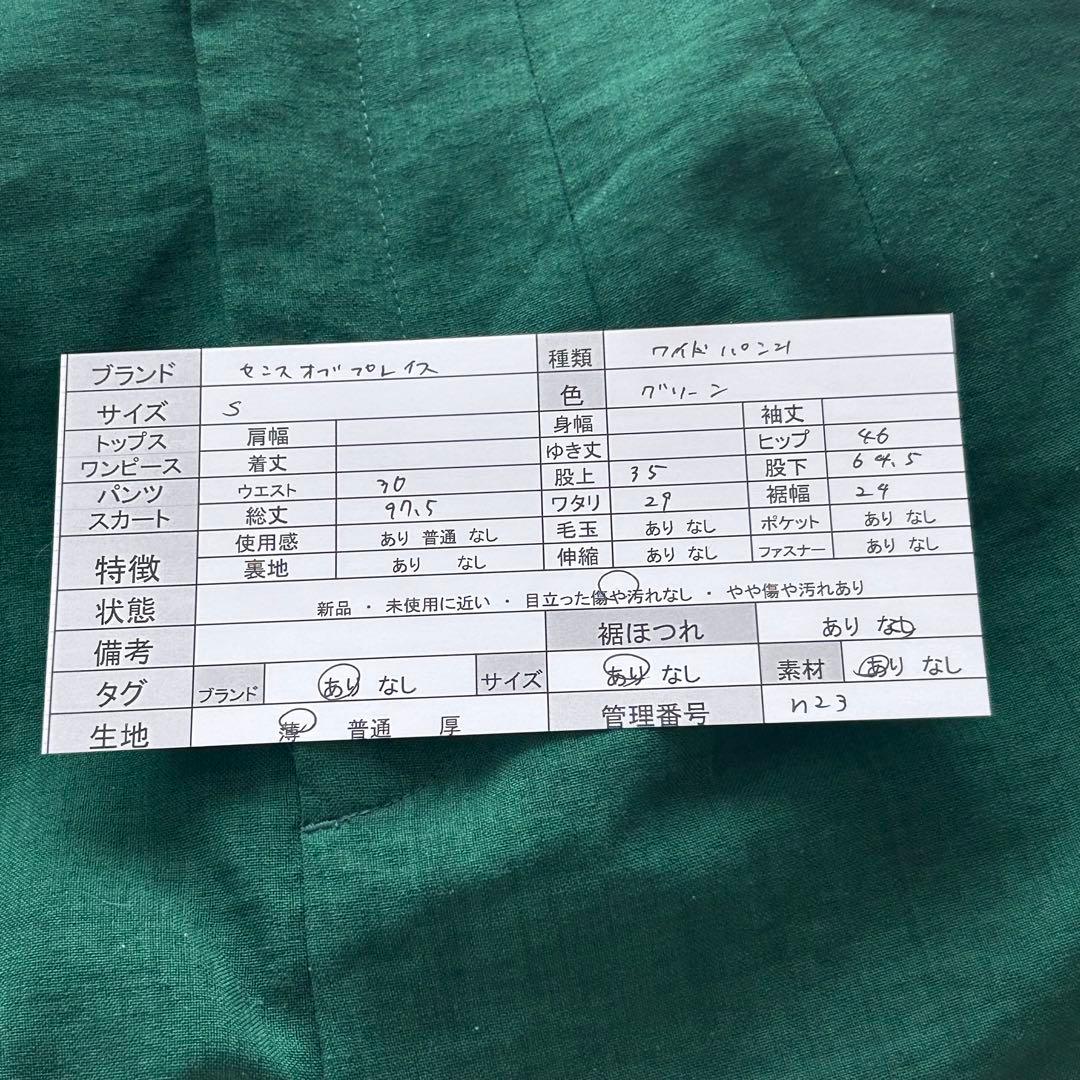 ブランド センスオブプレイス 種類 ワイドパンツ
サイズ S 色 グリーン
トップス 肩幅 身幅 袖丈
ワンピース 着丈 ゆき丈 ヒップ 46
パンツ ウエスト 30 股上 35 股下 64.5
スカート 総丈 97.5 ワタリ 29 裾幅 24
特徴 使用感 あり 普通 なし 毛玉 あり なし ポケット あり なし
裏地 あり なし 伸縮 あり なし ファスナー あり なし
状態 新品 ・ 未使用に近い ・ 目立った傷や汚れなし ・ やや傷や汚れあり
備考 裾ほつれ あり なし
タグ ブランド あり なし サイズ あり なし 素材 あり なし
生地 薄 普通 厚 管理番号 n23